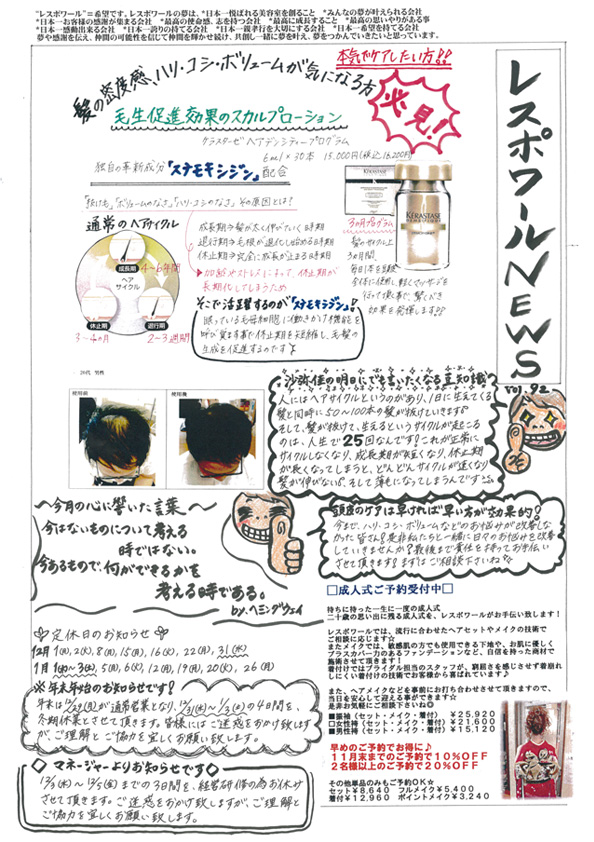 "レスポワール"=希望です。レスポワールの夢は、*日本一悦ばれる美容室を創ること　*みんなの夢が叶えられる会社
*日本一お客様の感謝が集まる会社　*最高の使命感、志を持つ会社　*最高に成長すること　*最高の思いやりがある事
*日本一感動出来る会社　*日本一誇りの持てる会社　*日本一親孝行を大切にする会社
夢や感謝を伝え、仲間の可能性を信じて仲間を輝かせ続け、共創し一緒に夢を叶え、夢をつかんでいきたいと思っています。
レスポワールNEWS
vol.92
本気でケアしたい方!!
髪の密度感、ハリ・コシ・ボリュームが気になる方
必見!
毛生促進効果のスカルプローション
ケラスターゼ ヘアデンシティープログラム
6ml×30本 15,000円(税込16,200円)
独自の革新成分『スナモキシジン』配合
「抜け毛」「ボリュームのなさ」「ハリ・コシのなさ」その原因とは?
通常のヘアサイクル
成長期
4~6年間
ヘア
サイクル
休止期
退行期
3~4ヵ月
2~3週間
成長期→髪が太く伸びていく時期
退行期→毛根が退化し始める時期
休止期→完全に成長が止まる時期
加齢やストレスによって、休止期が
長期化してしまうため
そこで活躍するのが『スナモキシジン』!
眠っている毛母細胞に働きかけ機能を
呼び覚ます事で休止期を短縮し、毛髪の
生成を促進するのです
KÉRASTASE
3ヵ月プログラム
髪のサイクル上
3ヵ月間、
毎日1本を頭皮
全体に使用し、軽くマッサージを
行って頂く事で、驚くべき
効果を発揮します!!
20代 男性
使用前
使用後
沙弥佳の明日にでも言いたくなる豆知識
人にはヘアサイクルというのがあり、1日に生えてくる
髪と同時に50~100本の髪が抜けていきます。
そして、髪が抜けて、生えるというサイクルが起こる
のは、人生で25回なんです!これが正常に
サイクルしなくなり、成長期が短くなり、休止期
が長くなってしまうと、どんどんサイクルが速くなり
髪が伸びない!、そして薄毛になってしまうんです
~今月の心に響いた言葉~
今はないものについて考える
時ではない。
今あるもので、何ができるかを
考える時である。
by.ヘミングウェイ
頭皮のケアは早ければ早い方が効果的!
今まで、ハリ・コシ・ボリュームなどのお悩みが改善しな
かった皆さん!是非私たちと一緒に日々のお悩みを改善
していきませんか?最後まで責任を持ってお手伝い
させて頂きます!まずはご相談下さいね
□成人式ご予約受付中□
待ちに待った一生に一度の成人式
二十歳の思い出に残る成人式を、レスポワールがお手伝い致します!
レスポワールでは、流行に合わせたヘアセットやメイクの技術で
ご相談に応じます☆
またメイクでは、敏感肌の方でも使用できる下地や、お肌に優しく
プラスカバー力のあるファンデーションなど、自信を持った商材で
施術させて頂きます!
着付けではブライダル担当のスタッフが、窮屈さを感じさせず着崩れ
しにくい着付けの技術でお客様から喜ばれています♪
また、ヘアメイクなどを事前にお打ち合わせさせて頂きますので、
当日を安心して迎える事ができます☆
是非お気軽にご相談下さい◎
■振袖(セット・メイク・着付) ¥25,920
□女性袴(セット・メイク・着付) ¥21,600
■男性袴(セット・メイク・着付) ¥15,120
早めのご予約でお得に♪
11月末までのご予約で10%OFF
2名様以上のご予約で20%OFF
その他単品のみもご予約OK☆
セット¥8,640 フルメイク¥5,400
着付¥12,960 ポイントメイク¥3,240
定休日のお知らせ
12月 1(火),2(水),8(火),15(火),16(水),22(火),31(木)
1月 1(金)~3(日),5(火),6(水),12(火),19(火),20(水),26(火)
※年末年始のお知らせです!
年末は12/30(水)が通常営業となり、12/31(木)~1/3(日)の4日間を、
冬期休業とさせて頂きます。皆様にはご迷惑をおかけ致しますが、
ご理解とご協力を宜しくお願い致します。
◇マネージャーよりお知らせです◇
12/3(木)~12/5(金)までの3日間を、経営研修の為お休み
させて頂きます。ご迷惑をおかけ致しますが、ご理解と
ご協力を宜しくお願い致します。